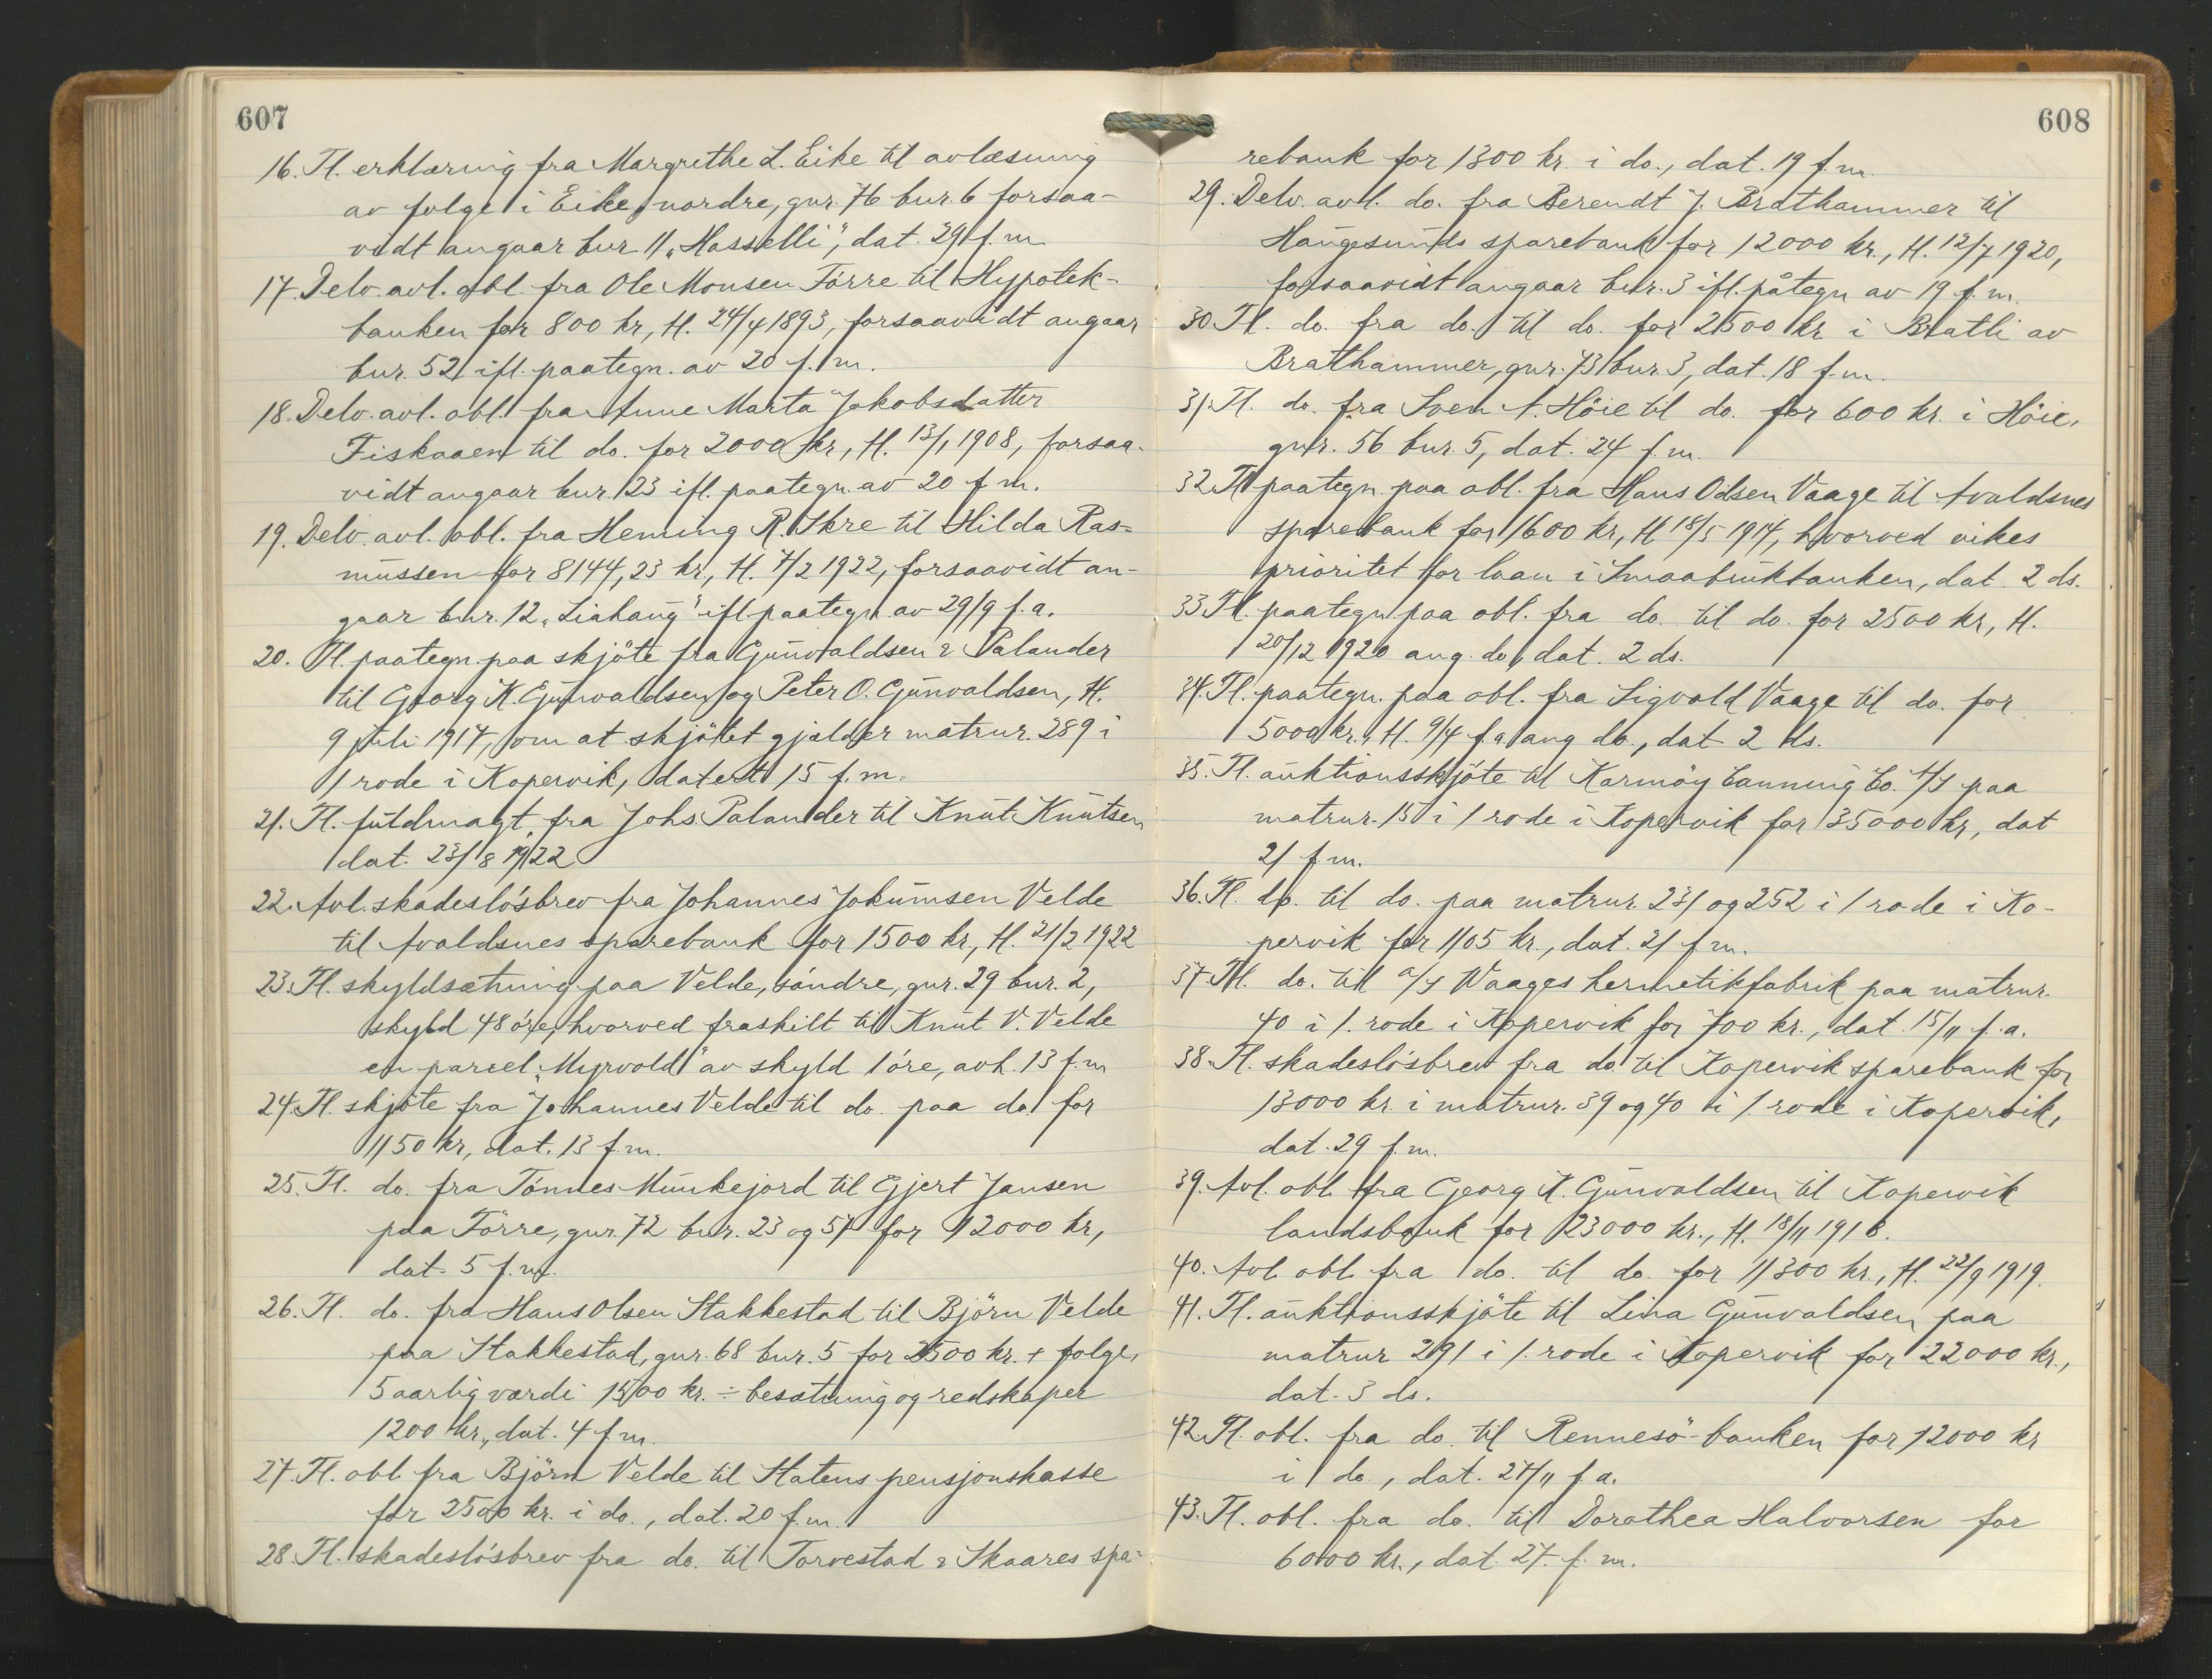 607
16. Tl. erklæring fra Margrethe L. Eike til avlæsning
av folge i Eike, nordre, gnr. 76 bnr. 6 forsaa-
vidt angaar bnr 11 „Hasselli", dat. 29 f.m.
17. Delv. avl. obl. fra Ole Monsen Förre til Hypotek-
banken for 800 kr, tl. 24/4 1893, forsaavidt angaar
bnr. 52 ifl. paategn. av 20 f.m.
18. Delv. avl. obl. fra Anne Marta Jakobsdatter
Fiskaaen til do. for 2000 kr, tl. 13/1 1908, forsaa-
vidt angaar bnr. 23 ifl. paategn. av 20 f.m.
19. Delv. avl. obl. fra Heming R. Skre til Hilda Ras-
mussen for 8144,23 kr, tl. 7/2 1922, forsaavidt an-
gaar bnr. 12 „Liahaug" ifl. paategn. av 29/9 f.a.
20. Tl. paategn. paa skjöte fra Gunvaldsen & Palander
til Georg K. Gunvaldsen og Peter O. Gunvaldsen, tl.
9 juli 1917, om at skjötet gjelder matrnr. 289 i
1 rode i Kopervik, datert 15 f.m.
21. Tl. fuldmagt fra Johs Palander til Knut Knutsen
dat. 23/8 1922
22. Avl. skadeslösbrev fra Johannes Jokumsen Velde
til Avaldsnes sparebank for 1500 kr., tl. 21/2 1922
23. Tl. skyldsætning paa Velde, söndre, gnr. 29 bnr. 2,
skyld 48 öre, hvorved fraskilt til Knut V. Velde
en parcel „Myrvold" av skyld 1 öre, avh. 13 f.m
24. Tl. skjöte fra Johannes Velde til do. paa do. for
1150 kr, dat. 13 f.m.
25. Tl. do. fra Tönnes Munkejord til Gjert Jansen
paa Förre, gnr. 72 bnr. 23 og 57 for 12000 kr,
dat. 5 f.m.
26. Tl. do. fra Hans Olsen Stakkestad til Björn Velde
paa Stakkestad, gnr. 68 bnr. 5 for 2500 kr. + folge,
5 aarlig værdi 1500 kr. ÷ besætning og redskaper
1200 kr., dat. 4 f.m.
27. Tl. obl. fra Björn Velde til Statens pensjonskasse
for 2500 kr. i do., dat. 20 f.m.
28. Tl. skadeslösbrev fra do. til Torvestad & Skaares spa-
608
rebank for 1300 kr. i do., dat. 19 f.m.
29. Delv. avl. do. fra Berendt J. Brathammer til
Haugesunds sparebank for 12000 kr., tl. 12/7 1920,
forsaavidt angaar bnr. 3 ifl. påtegn av 19 f.m.
30. Tl. do. fra do. til do. for 2500 kr i Bratli av
Brathammer, gnr. 73 bnr. 3, dat. 18 f.m.
31. Tl. do. fra Sven A. Höie til do. for 600 kr. i Höie,
gnr. 56 bnr. 5, dat. 24 f.m.
32. Tl. paategn. paa obl. fra Hans Odsen Vaage til Avaldsnes
sparebank for 1600 kr, tl 18/5 1914, hvorved vikes
prioritet for laan i Smaabrukbanken, dat. 2 ds.
33. Tl. paategn. paa obl. fra do. til do. for 2500 kr, tl.
20/12 1920 ang. do., dat. 2 ds.
34. Tl. paategn. paa obl. fra Sigvald Vaage til do. for
5000 kr., tl. 9/4 f.a. ang do., dat 2 ds.
35. Tl. auktionsskjöte til Karmöy Canning Co. A/S paa
matrnr. 15 i 1 rode i Kopervik for 35000 kr, dat
21 f.m.
36. Tl. do. til do. paa matrnr. 231 og 252 i 1 rode i Ko-
pervik for 1105 kr., dat. 21 f.m.
37. Tl. do. til A/S Waages hermetikfabrik paa matrnr.
40 i 1. rode i Kopervik for 700 kr., dat 15/11 f.a.
38. Tl. skadeslösbrev fra do. til Kopervik sparebank for
13000 kr. i matrnr. 39 og 40 i 1. rode i Kopervik,
dat. 29 f.m.
39. Avl. obl. fra Georg K. Gunvaldsen til Kopervik
landsbank for 23000 kr., tl. 18/11 1918.
40. Avl. obl. fra do. til do. for 11300 kr., tl. 22/9 1919.
41. Tl. auktionsskjöte til Lina Gunvaldsen paa
matrnr 291 i 1. rode i Kopervik for 22000 kr.,
dat. 3 ds.
42. Tl. obl. fra do. til Rennesö-banken for 12000 kr
i do., dat. 27/11 f.a.
43. Tl. obl. fra do. til Dorothea Halvorsen for
6000 kr., dat. 27. f.m.